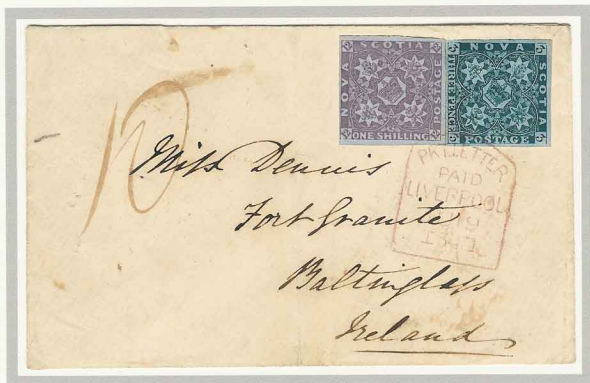 NOVA SCOTIA POSTAGE ONE SHILLING
NOVA SCOTIA POSTAGE THREE PENCE
10
PKT.LETTER
PAID
LIVERPOOL
Miss Dennis
Fort Granite
Baltinglass
Ireland